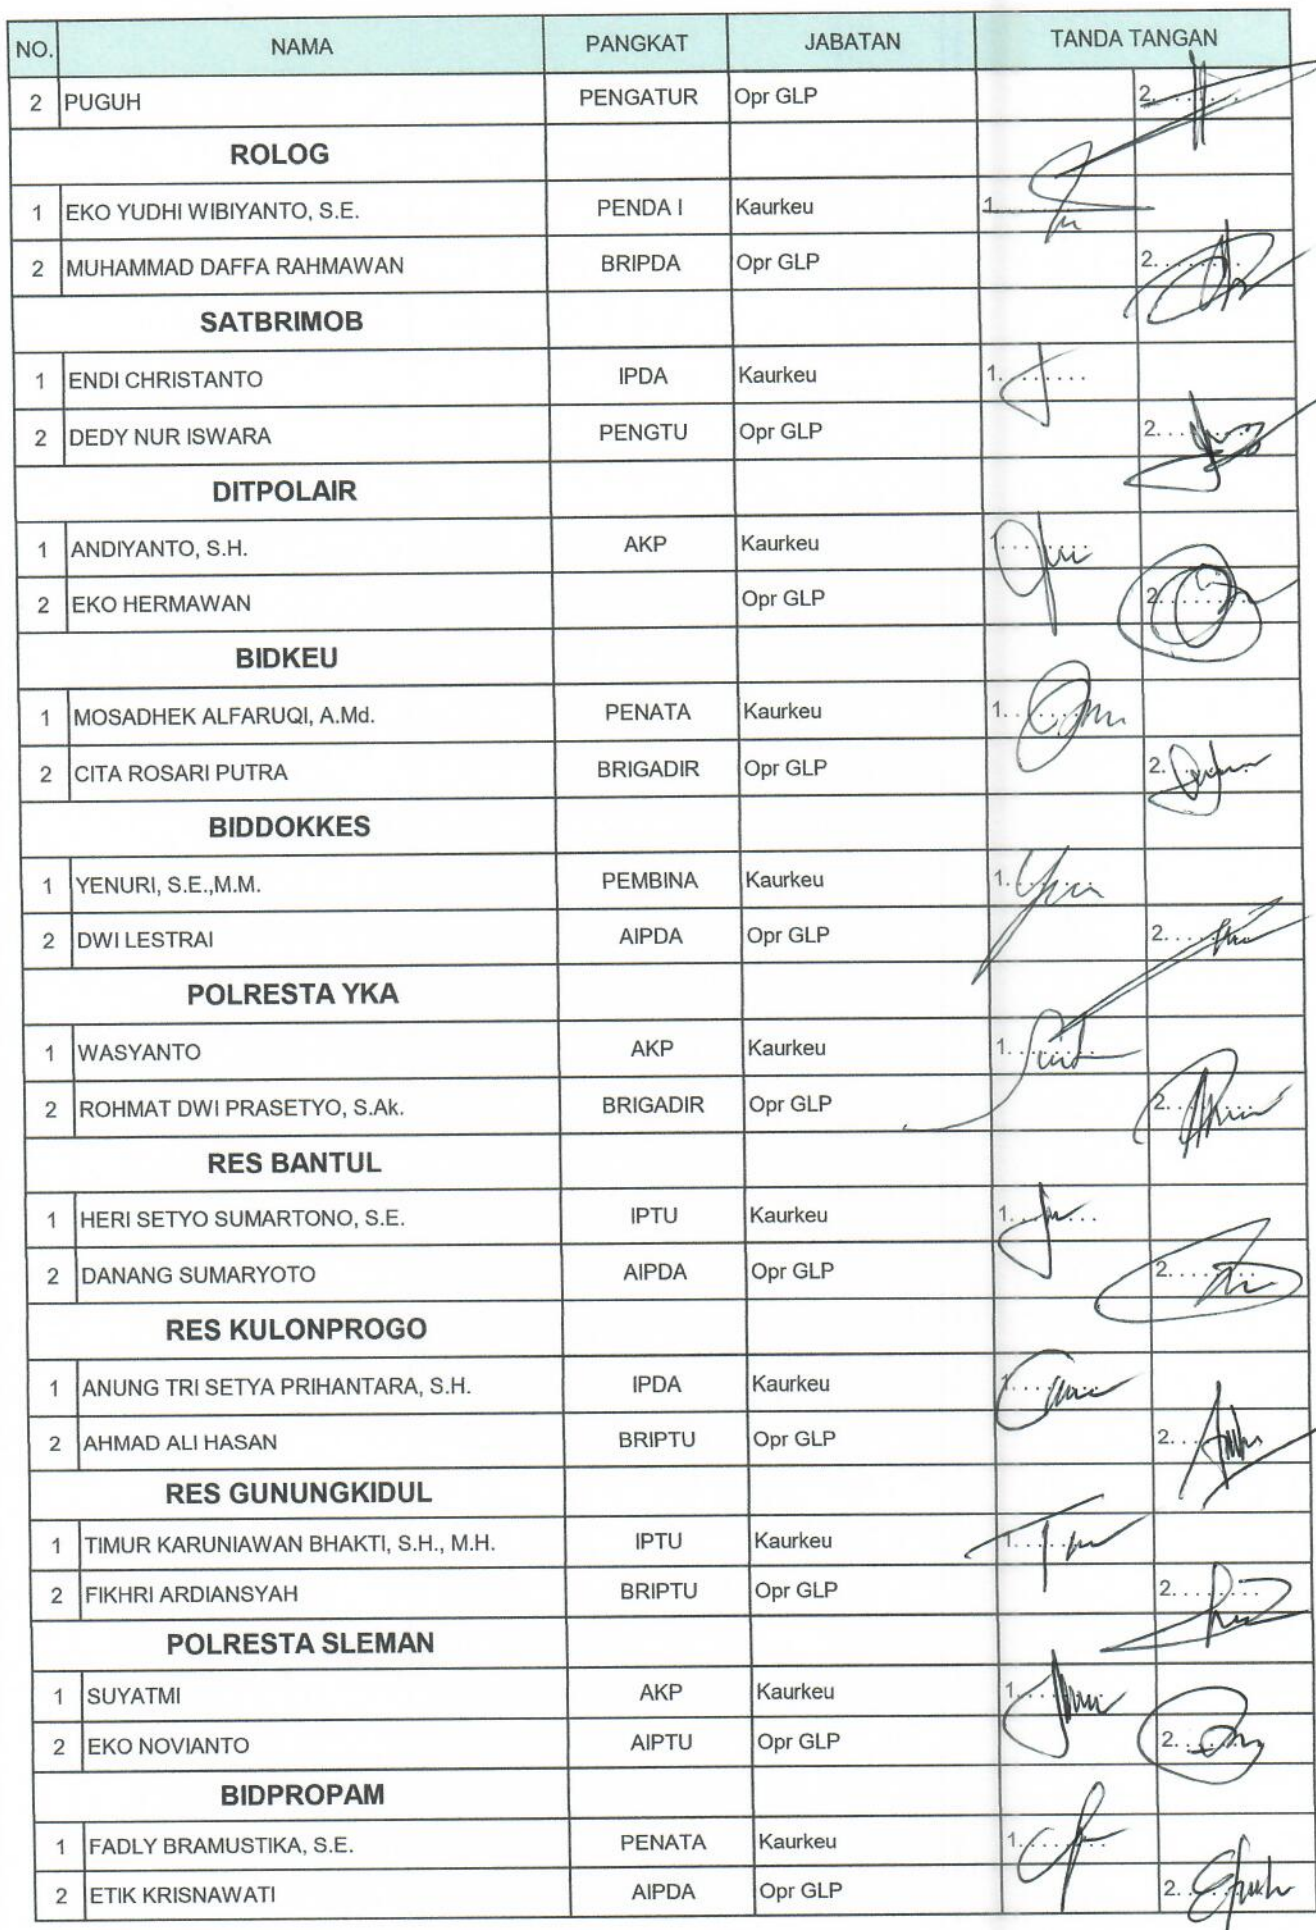 NO. NAMA PANGKAT JABATAN TANDA TANGAN
2 PUGUH PENGATUR Opr GLP 2.........
ROLOG
1 EKO YUDHI WIBIYANTO, S.E. PENDA I Kaurkeu 1.........
2 MUHAMMAD DAFFA RAHMAWAN BRIPDA Opr GLP 2.........
SATBRIMOB
1 ENDI CHRISTANTO IPDA Kaurkeu 1.........
2 DEDY NUR ISWARA PENGTU Opr GLP 2.........
DITPOLAIR
1 ANDIYANTO, S.H. AKP Kaurkeu 1.........
2 EKO HERMAWAN Opr GLP 2.........
BIDKEU
1 MOSADHEK ALFARUQI, A.Md. PENATA Kaurkeu 1.........
2 CITA ROSARI PUTRA BRIGADIR Opr GLP 2.........
BIDDOKKES
1 YENURI, S.E.,M.M. PEMBINA Kaurkeu 1.........
2 DWI LESTRAI AIPDA Opr GLP 2.........
POLRESTA YKA
1 WASYANTO AKP Kaurkeu 1.........
2 ROHMAT DWI PRASETYO, S.Ak. BRIGADIR Opr GLP 2.........
RES BANTUL
1 HERI SETYO SUMARTONO, S.E. IPTU Kaurkeu 1.........
2 DANANG SUMARYOTO AIPDA Opr GLP 2.........
RES KULONPROGO
1 ANUNG TRI SETYA PRIHANTARA, S.H. IPDA Kaurkeu 1.........
2 AHMAD ALI HASAN BRIPTU Opr GLP 2.........
RES GUNUNGKIDUL
1 TIMUR KARUNIAWAN BHAKTI, S.H., M.H. IPTU Kaurkeu 1.........
2 FIKHRI ARDIANSYAH BRIPTU Opr GLP 2.........
POLRESTA SLEMAN
1 SUYATMI AKP Kaurkeu 1.........
2 EKO NOVIANTO AIPTU Opr GLP 2.........
BIDPROPAM
1 FADLY BRAMUSTIKA, S.E. PENATA Kaurkeu 1.........
2 ETIK KRISNAWATI AIPDA Opr GLP 2.........